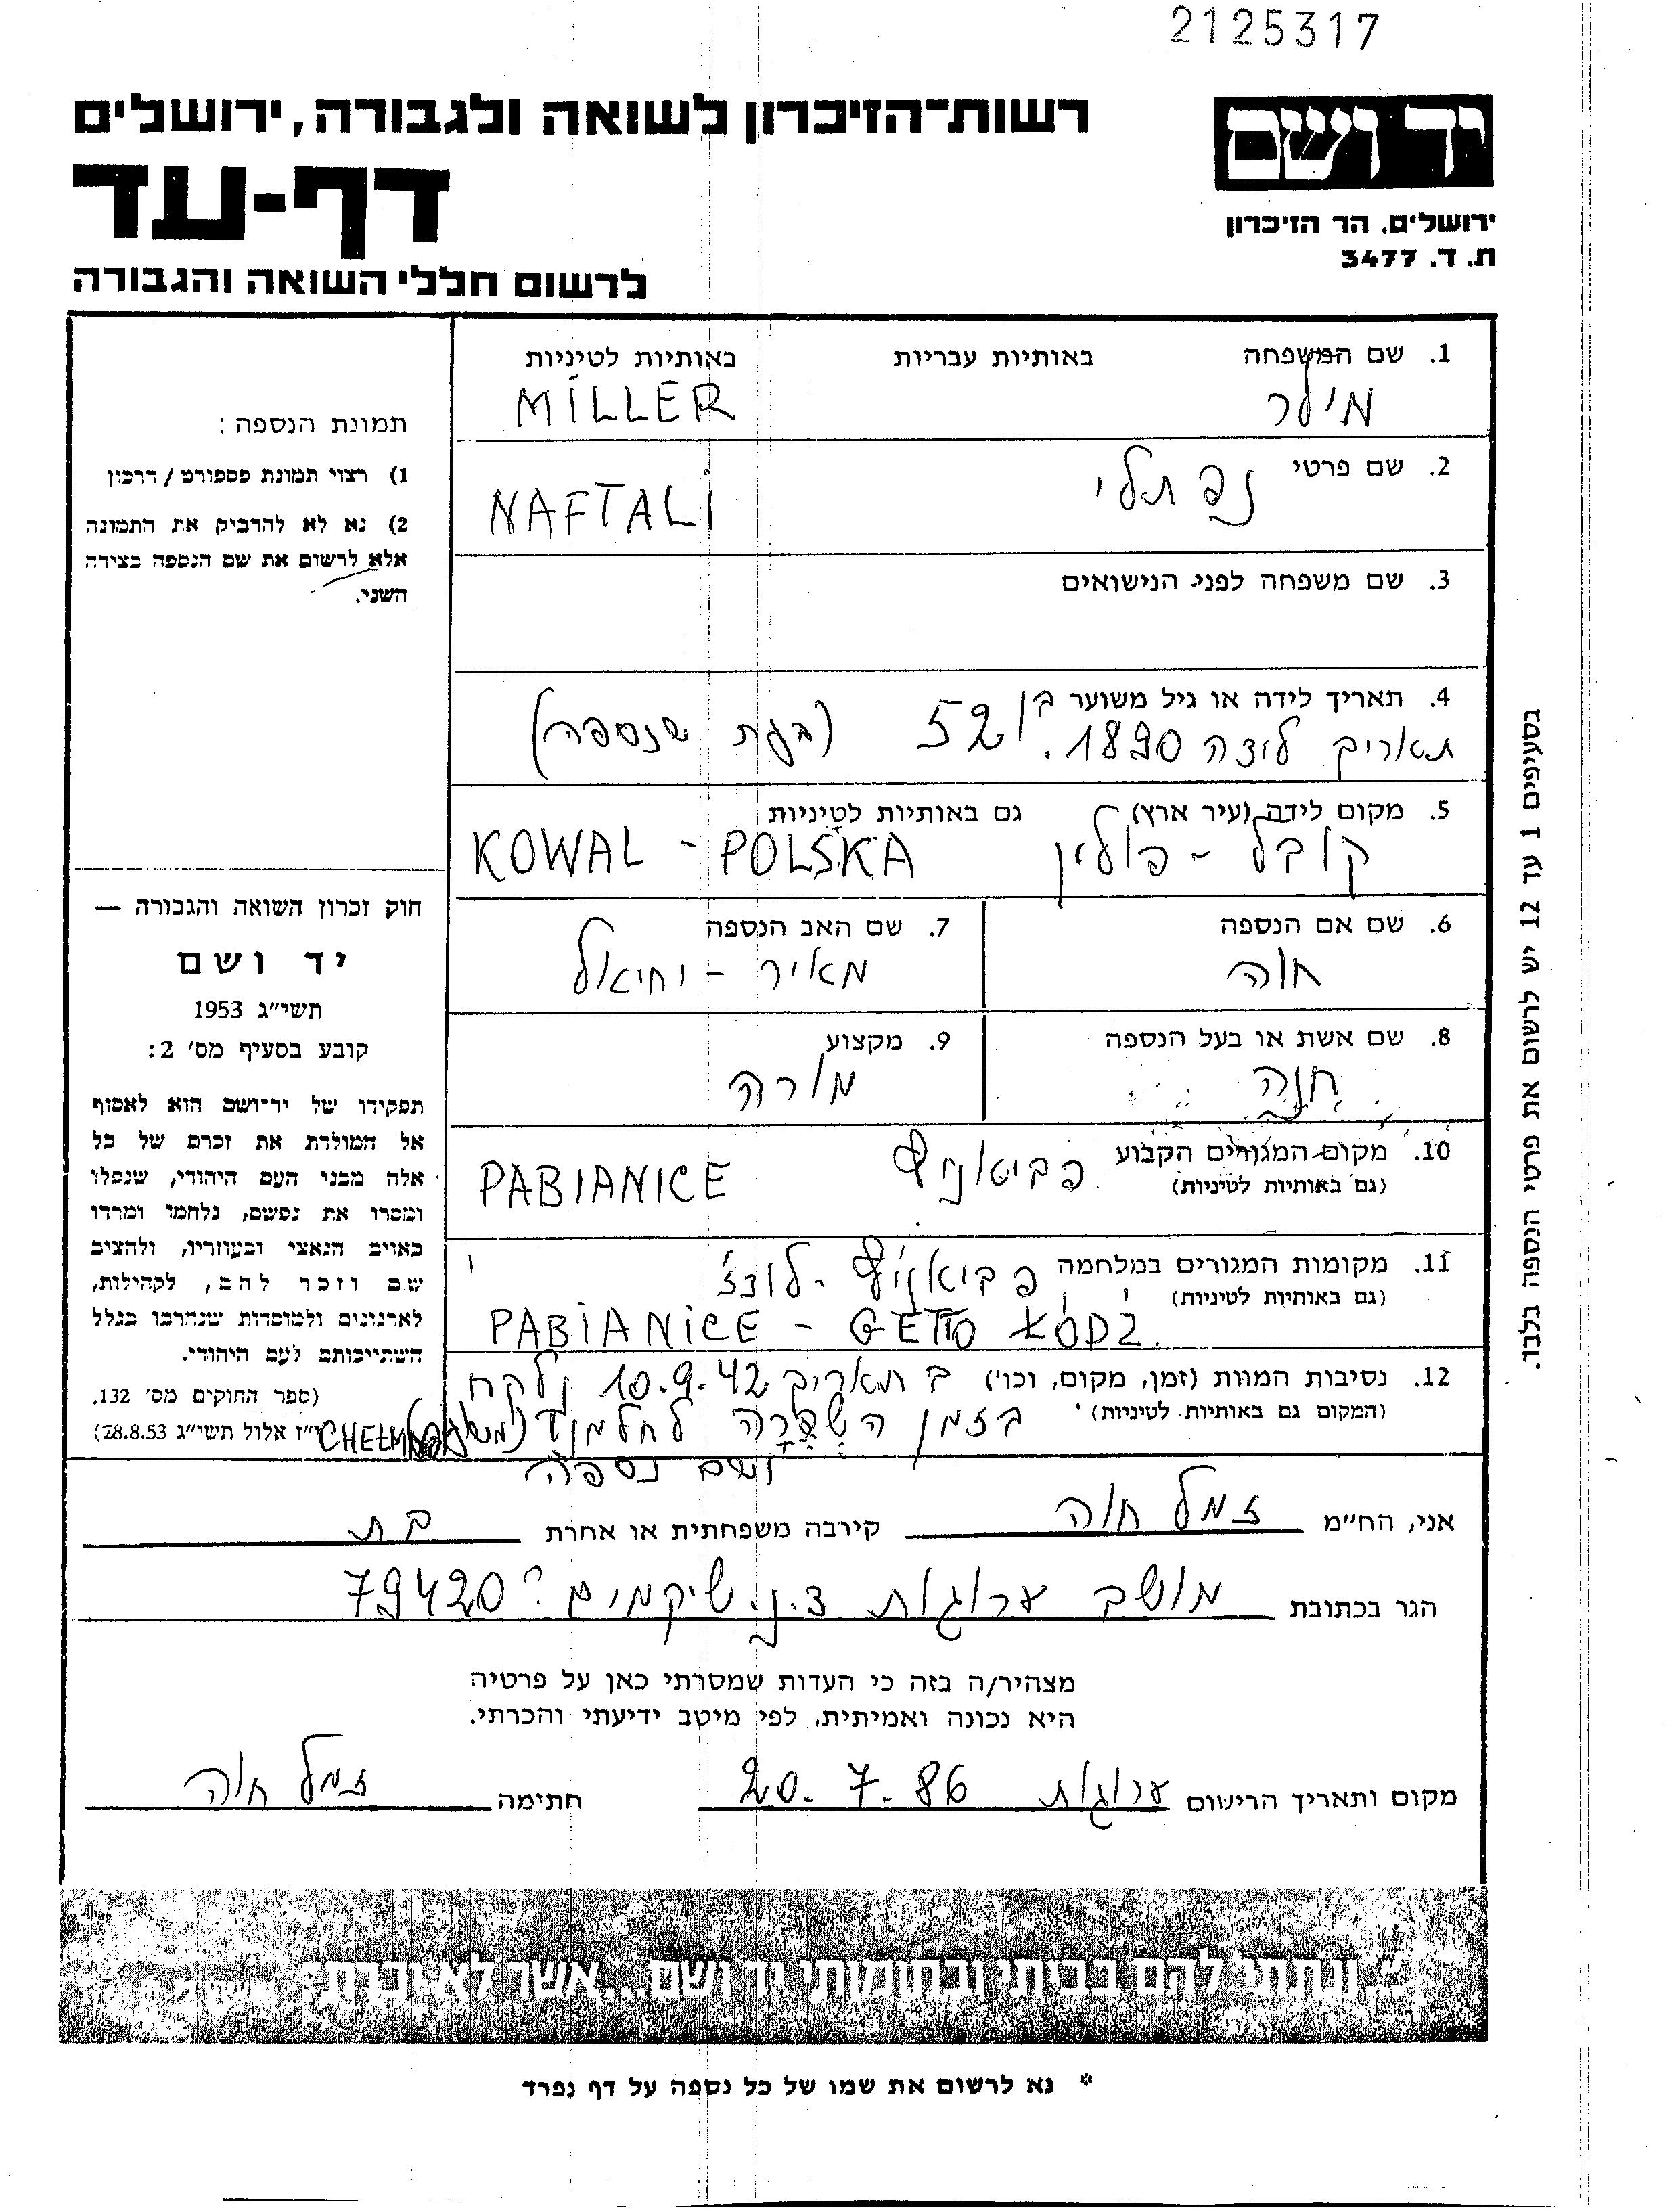 2125317
יד ושם
רשות־הזיכרון לשואה ולגבורה, ירושלים
דף-עד
ירושלים, הר הזיכרון
ת. ד. 3477
לרשום חללי השואה והגבורה
1. שם המשפחה באותיות עבריות באותיות לטיניות
מילר MILLER
2. שם פרטי נפתלי NAFTALI
3. שם משפחה לפני הנישואים
4. תאריך לידה או גיל משוער בן 52 (בעת שנספה)
תאריך לידה 1890.
5. מקום לידה (עיר ארץ) גם באותיות לטיניות
קובל - פולין KOWAL - POLSKA
6. שם אם הנספה 7. שם האב הנספה
חוה מאיר - יחיאל
8. שם אשת או בעל הנספה 9. מקצוע
חנה מורה
10. מקום המגורים הקבוע פביאניץ PABIANICE
(גם באותיות לטיניות)
11. מקומות המגורים במלחמה פביאניץ - לודז'
(גם באותיות לטיניות)
PABIANICE - GETTO ŁÓDŹ.
12. נסיבות המוות (זמן, מקום, וכו') ב תאריך 10.9.42 נלקח
(המקום גם באותיות לטיניות) בזמן השפרה לחלמנו
ושם נספה
תמונת הנספה:
1) רצוי תמונת פספורט / דרכון
2) נא לא להדביק את התמונה
אלא לרשום את שם הנספה בצידה
השני.
חוק זכרון השואה והגבורה —
יד ושם
תשי״ג 1953
קובע בסעיף מס׳ 2:
תפקידו של יד־ושם הוא לאסוף
אל המולדת את זכרם של כל
אלה מבני העם היהודי, שנפלו
ומסרו את נפשם, נלחמו ומרדו
באויב הנאצי ובעוזריו, ולהציב
שם וזכר להם, לקהילות,
לארגונים ולמוסדות שנהרבו בגלל
השתייכותם לעם היהודי.
(ספר החוקים מס׳ 132,
י״ז אלול תשי״ג 28.8.53)
בסעיפים 1 עד 12 יש לרשום את פרטי הנספה בלבד.
אני, הח״מ זמל חוה קירבה משפחתית או אחרת בת
הגר בכתובת מושב ערוגות ד.נ. שיקמים 79420
מצהיר/ה בזה כי העדות שמסרתי כאן על פרטיה
היא נכונה ואמיתית, לפי מיטב ידיעתי והכרתי.
מקום ותאריך הרישום ערוגות 20.7.86 חתימה זמל חוה
״...ונתתי להם בביתי ובחומותי יד ושם...אשר לא יכרת״
* נא לרשום את שמו של כל נספה על דף נפרד